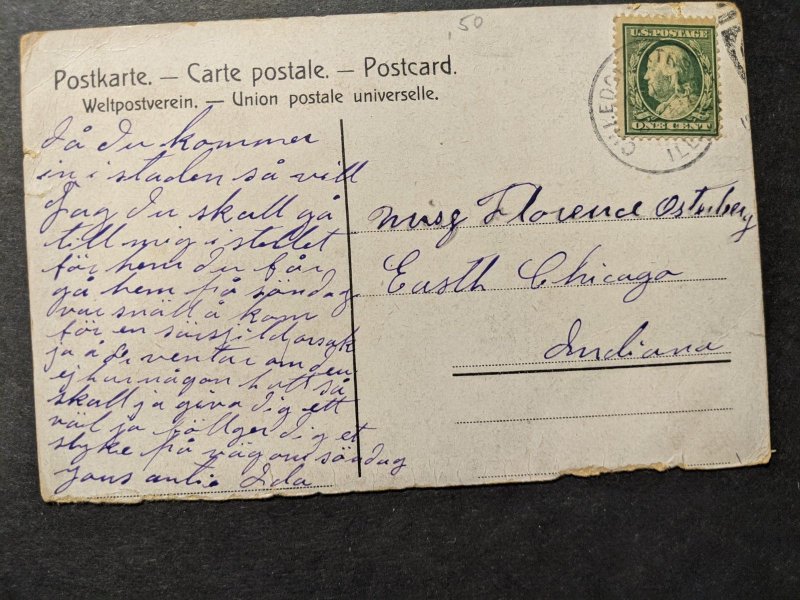 .50
Postkarte. — Carte postale. — Postcard.
Weltpostverein. — Union postale universelle.
U.S. POSTAGE
ONE CENT
då du kommer
in i staden så vill
Jag du skall gå
till mig i stellet
för hem du får
gå hem på söndag
var snäll å kom
för en särsjild orsak
ja å di ventar om du
ej har någon hatt så
skall ja giva dig ett
väl ja föllger dig et
styke på väg om söndag
yours antie Ida
Florence Osterberg
Easth Chicago
Indiana